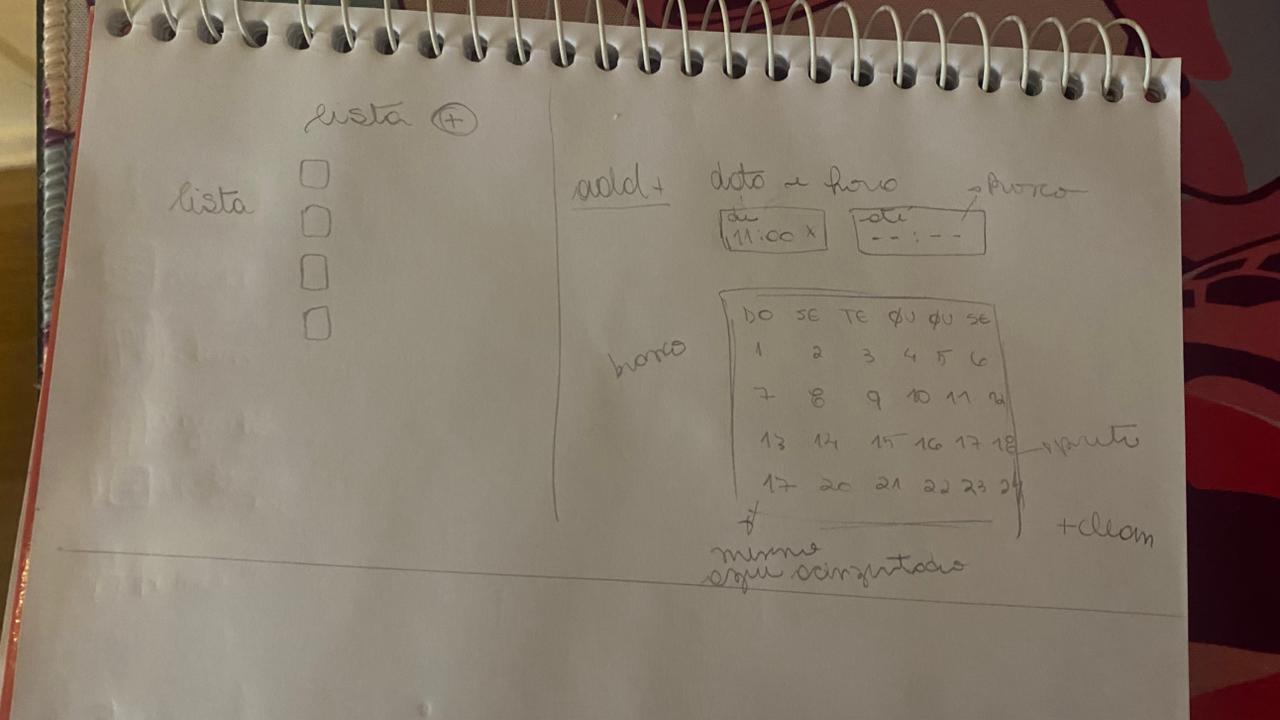 lista +
lista
add+
data e hora
branco
de
11:00 x
até
--:--
branco
DO SE TE QU QU SE
1 2 3 4 5 6
7 8 9 10 11 12
13 14 15 16 17 18
preto
17 20 21 22 23 24
+clean
mesmo
azul acinzentado